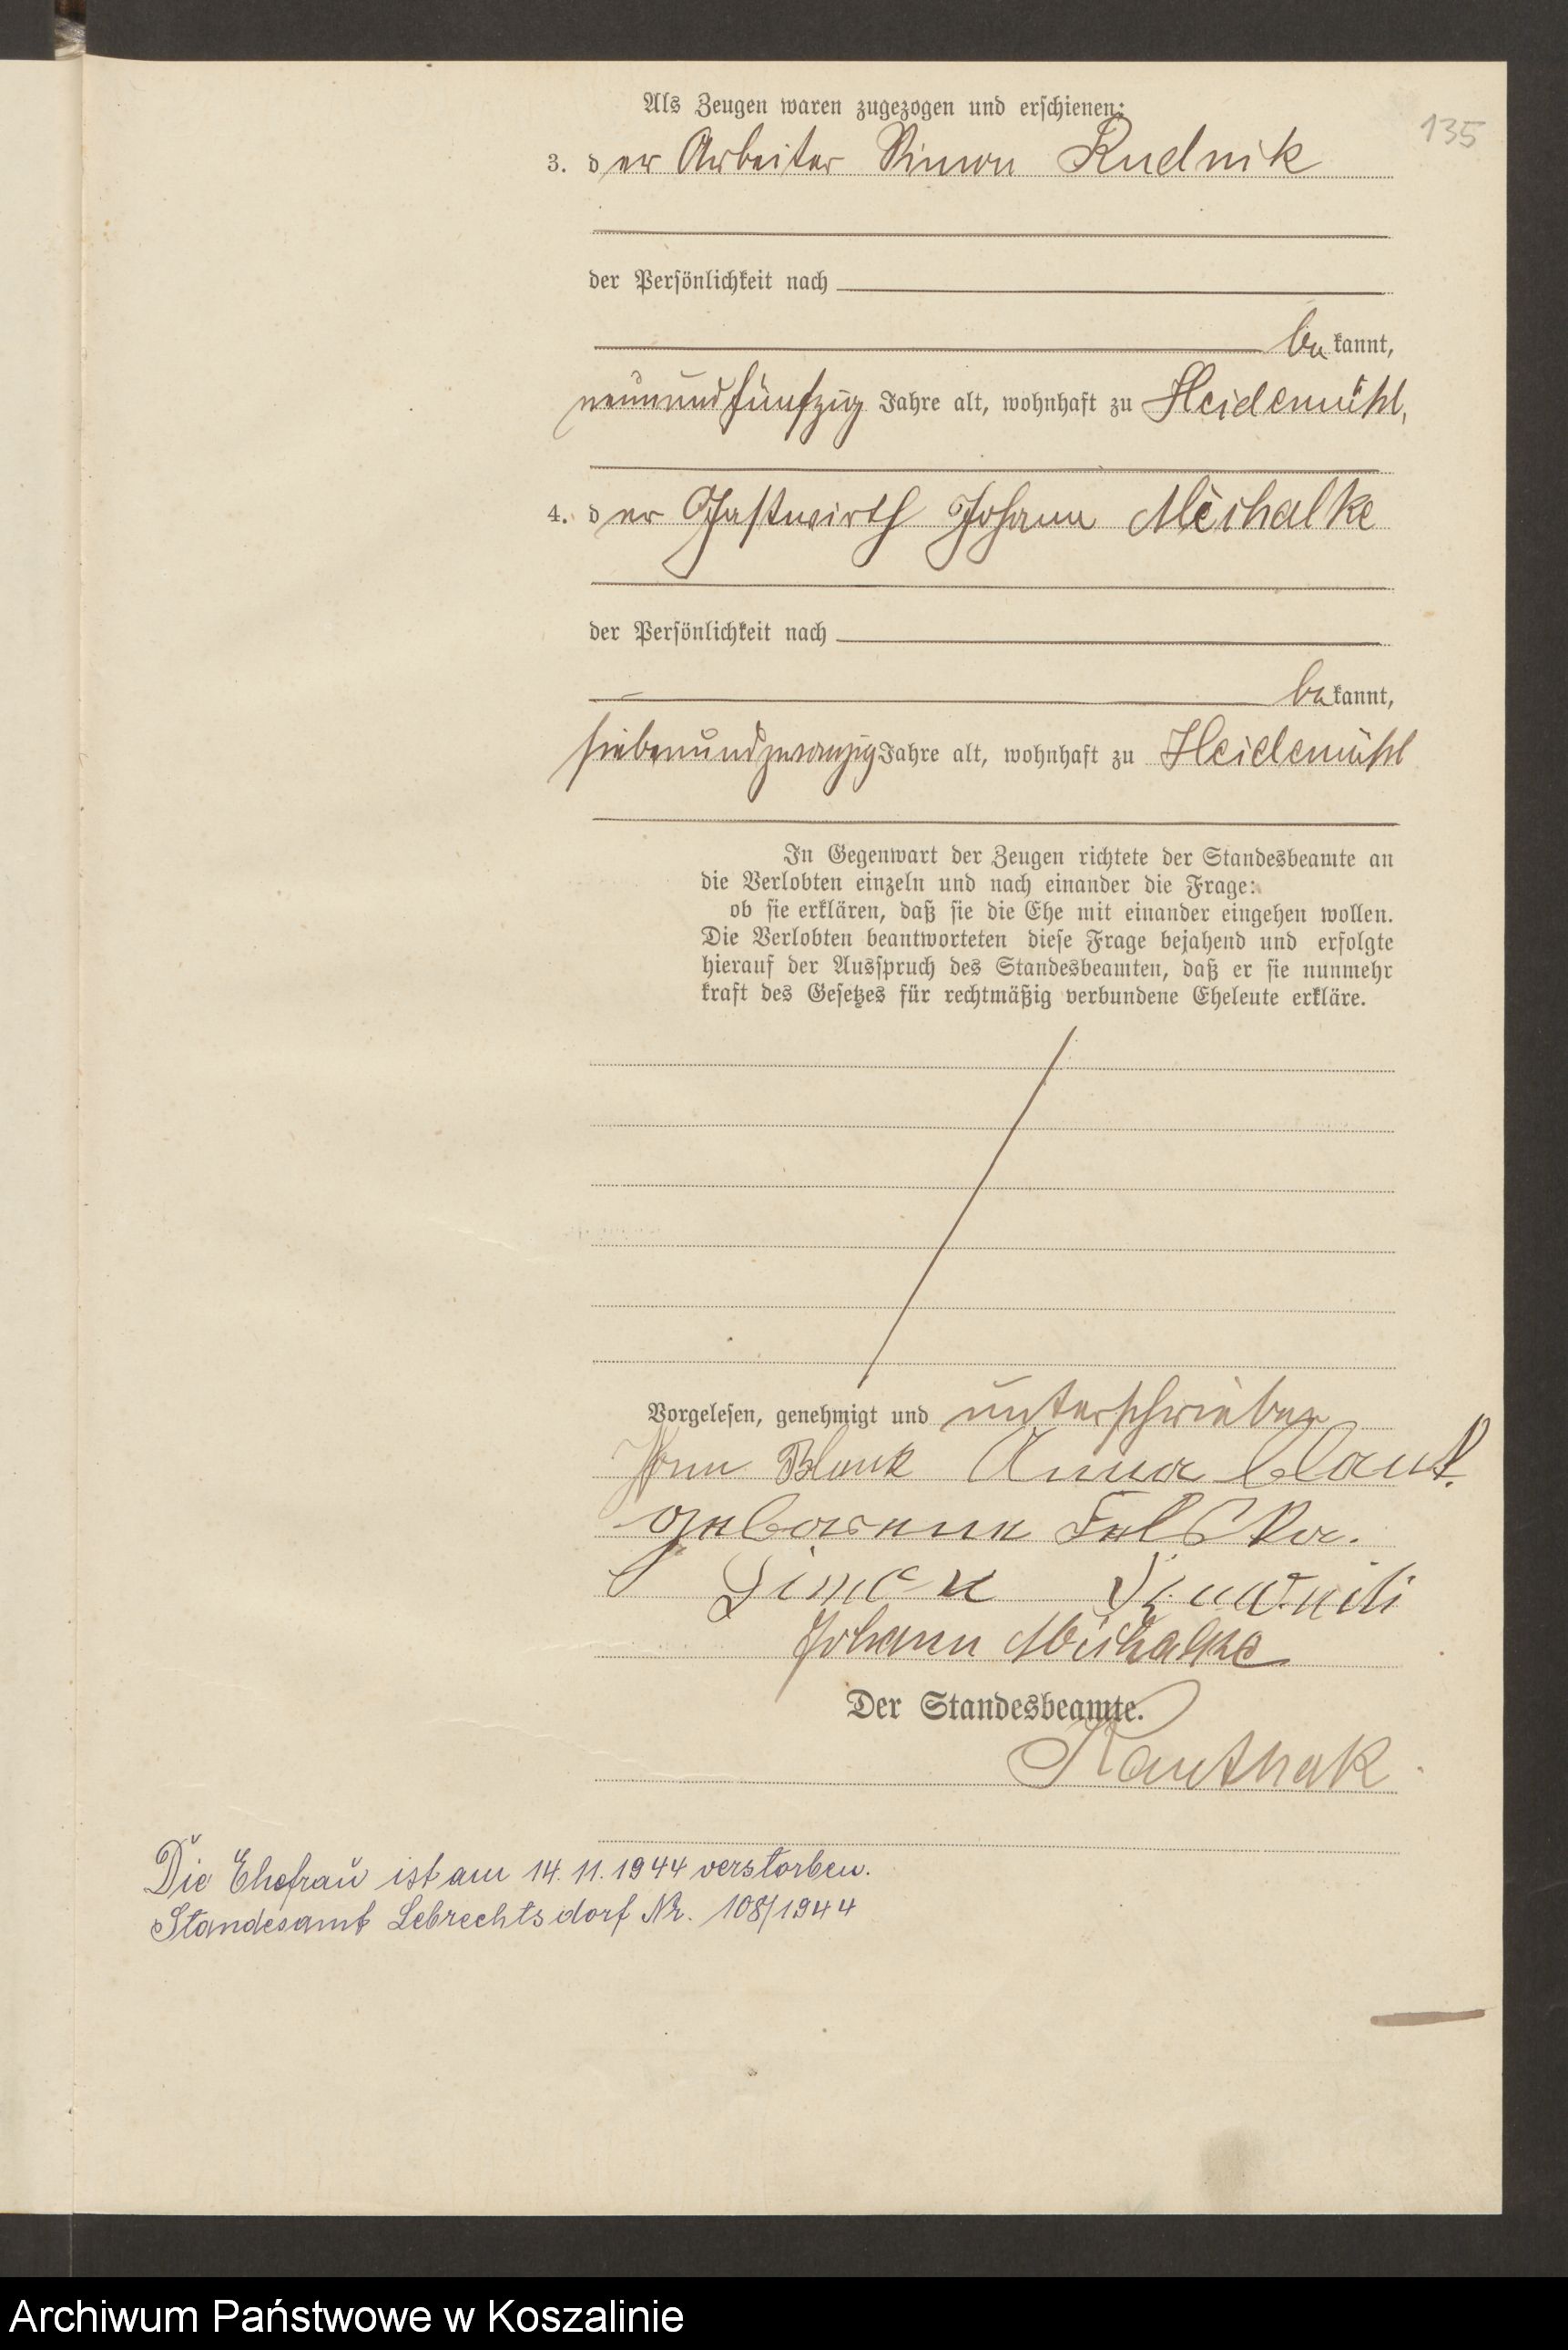 135
Als Zeugen waren zugezogen und erschienen:
3. der Arbeiter Simon Rudnik
der Persönlichkeit nach
bekannt,
neunundfünfzig Jahre alt, wohnhaft zu Heidemühl,
4. der Gastwirth Johann Michalke
der Persönlichkeit nach
bekannt,
siebenundzwanzig Jahre alt, wohnhaft zu Heidemühl
In Gegenwart der Zeugen richtete der Standesbeamte an
die Verlobten einzeln und nach einander die Frage:
ob sie erklären, daß sie die Ehe mit einander eingehen wollen.
Die Verlobten beantworteten diese Frage bejahend und erfolgte
hierauf der Ausspruch des Standesbeamten, daß er sie nunmehr
kraft des Gesetzes für rechtmäßig verbundene Eheleute erkläre.
Vorgelesen, genehmigt und unterschrieben
Blank Anna Blank
geborene
Simon
Johann Michalke
Der Standesbeamte.
Die Ehefrau ist am 14.11.1944 verstorben.
Standesamt Lebrechtsdorf Nr. 108/1944
Archiwum Państwowe w Koszalinie